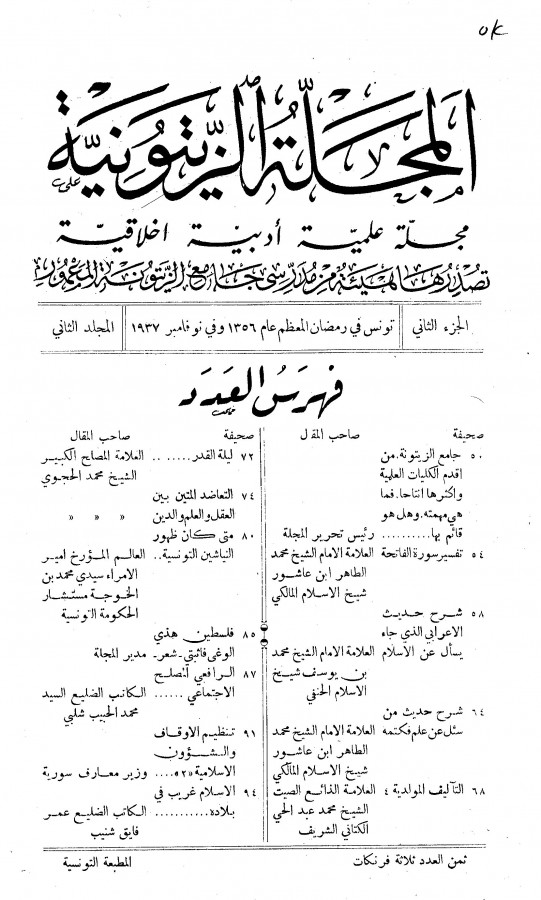 ok
المجلة الزيتونية
مجلة علمية أدبية اخلاقية
تصدرها هيئة من مدرسي جامع الزيتونة المعمور
الجزء الثاني
تونس في رمضان المعظم عام ١٣٥٦ وفي نوفامبر ١٩٣٧
المجلد الثاني
فهرس العدد
صحيفة صاحب المقال
٥٠ جامع الزيتونة. من
اقدم الكليات العلمية
واكثرها انتاجا. فما
هي مهمته. وهل هو
قائم بها.......... رئيس تحرير المجلة
٥٤ تفسير سورة الفاتحة العلامة الامام الشيخ محمد
الطاهر ابن عاشور
شيخ الاسلام المالكي
٥٨ شرح حديث
الاعرابي الذي جاء
يسأل عن الاسلام العلامة الامام الشيخ محمد
بن يوسف شيخ
الاسلام الحنفي
٦٤ شرح حديث من
سئل عن علم فكتمه العلامة الامام الشيخ محمد
الطاهر ابن عاشور
شيخ الاسلام المالكي
٦٨ التآليف المولدية ٤ العلامة الذائع الصيت
الشيخ محمد عبد الحي
الكتاني الشريف
صحيفة صاحب المقال
٧٢ ليلة القدر........ العلامة المصلح الكبير
الشيخ محمد الحجوي
٧٤ التعاضد المتين بين
العقل والعلم والدين » » »
٨٠ متى كان ظهور
النياشين التونسية.. العالم المؤرخ امير
الامراء سيدي محمد بن
الخوجة مستشار
الحكومة التونسية
٨٥ فلسطين هذي
الوغى فاثبتي - شعر - مدير المجلة
٨٧ الرافعي المصلح
الاجتماعي ...... الكاتب الضليع السيد
محمد الحبيب شلبي
٩١ تنظيم الاوقاف
والشؤون
الاسلامية «٥٢»... وزير معارف سورية
٩٤ الاسلام غريب في
بلاده........... الكاتب الضليع عمر
فايق شنيب
ثمن العدد ثلاثة فرنكات
المطبعة التونسية